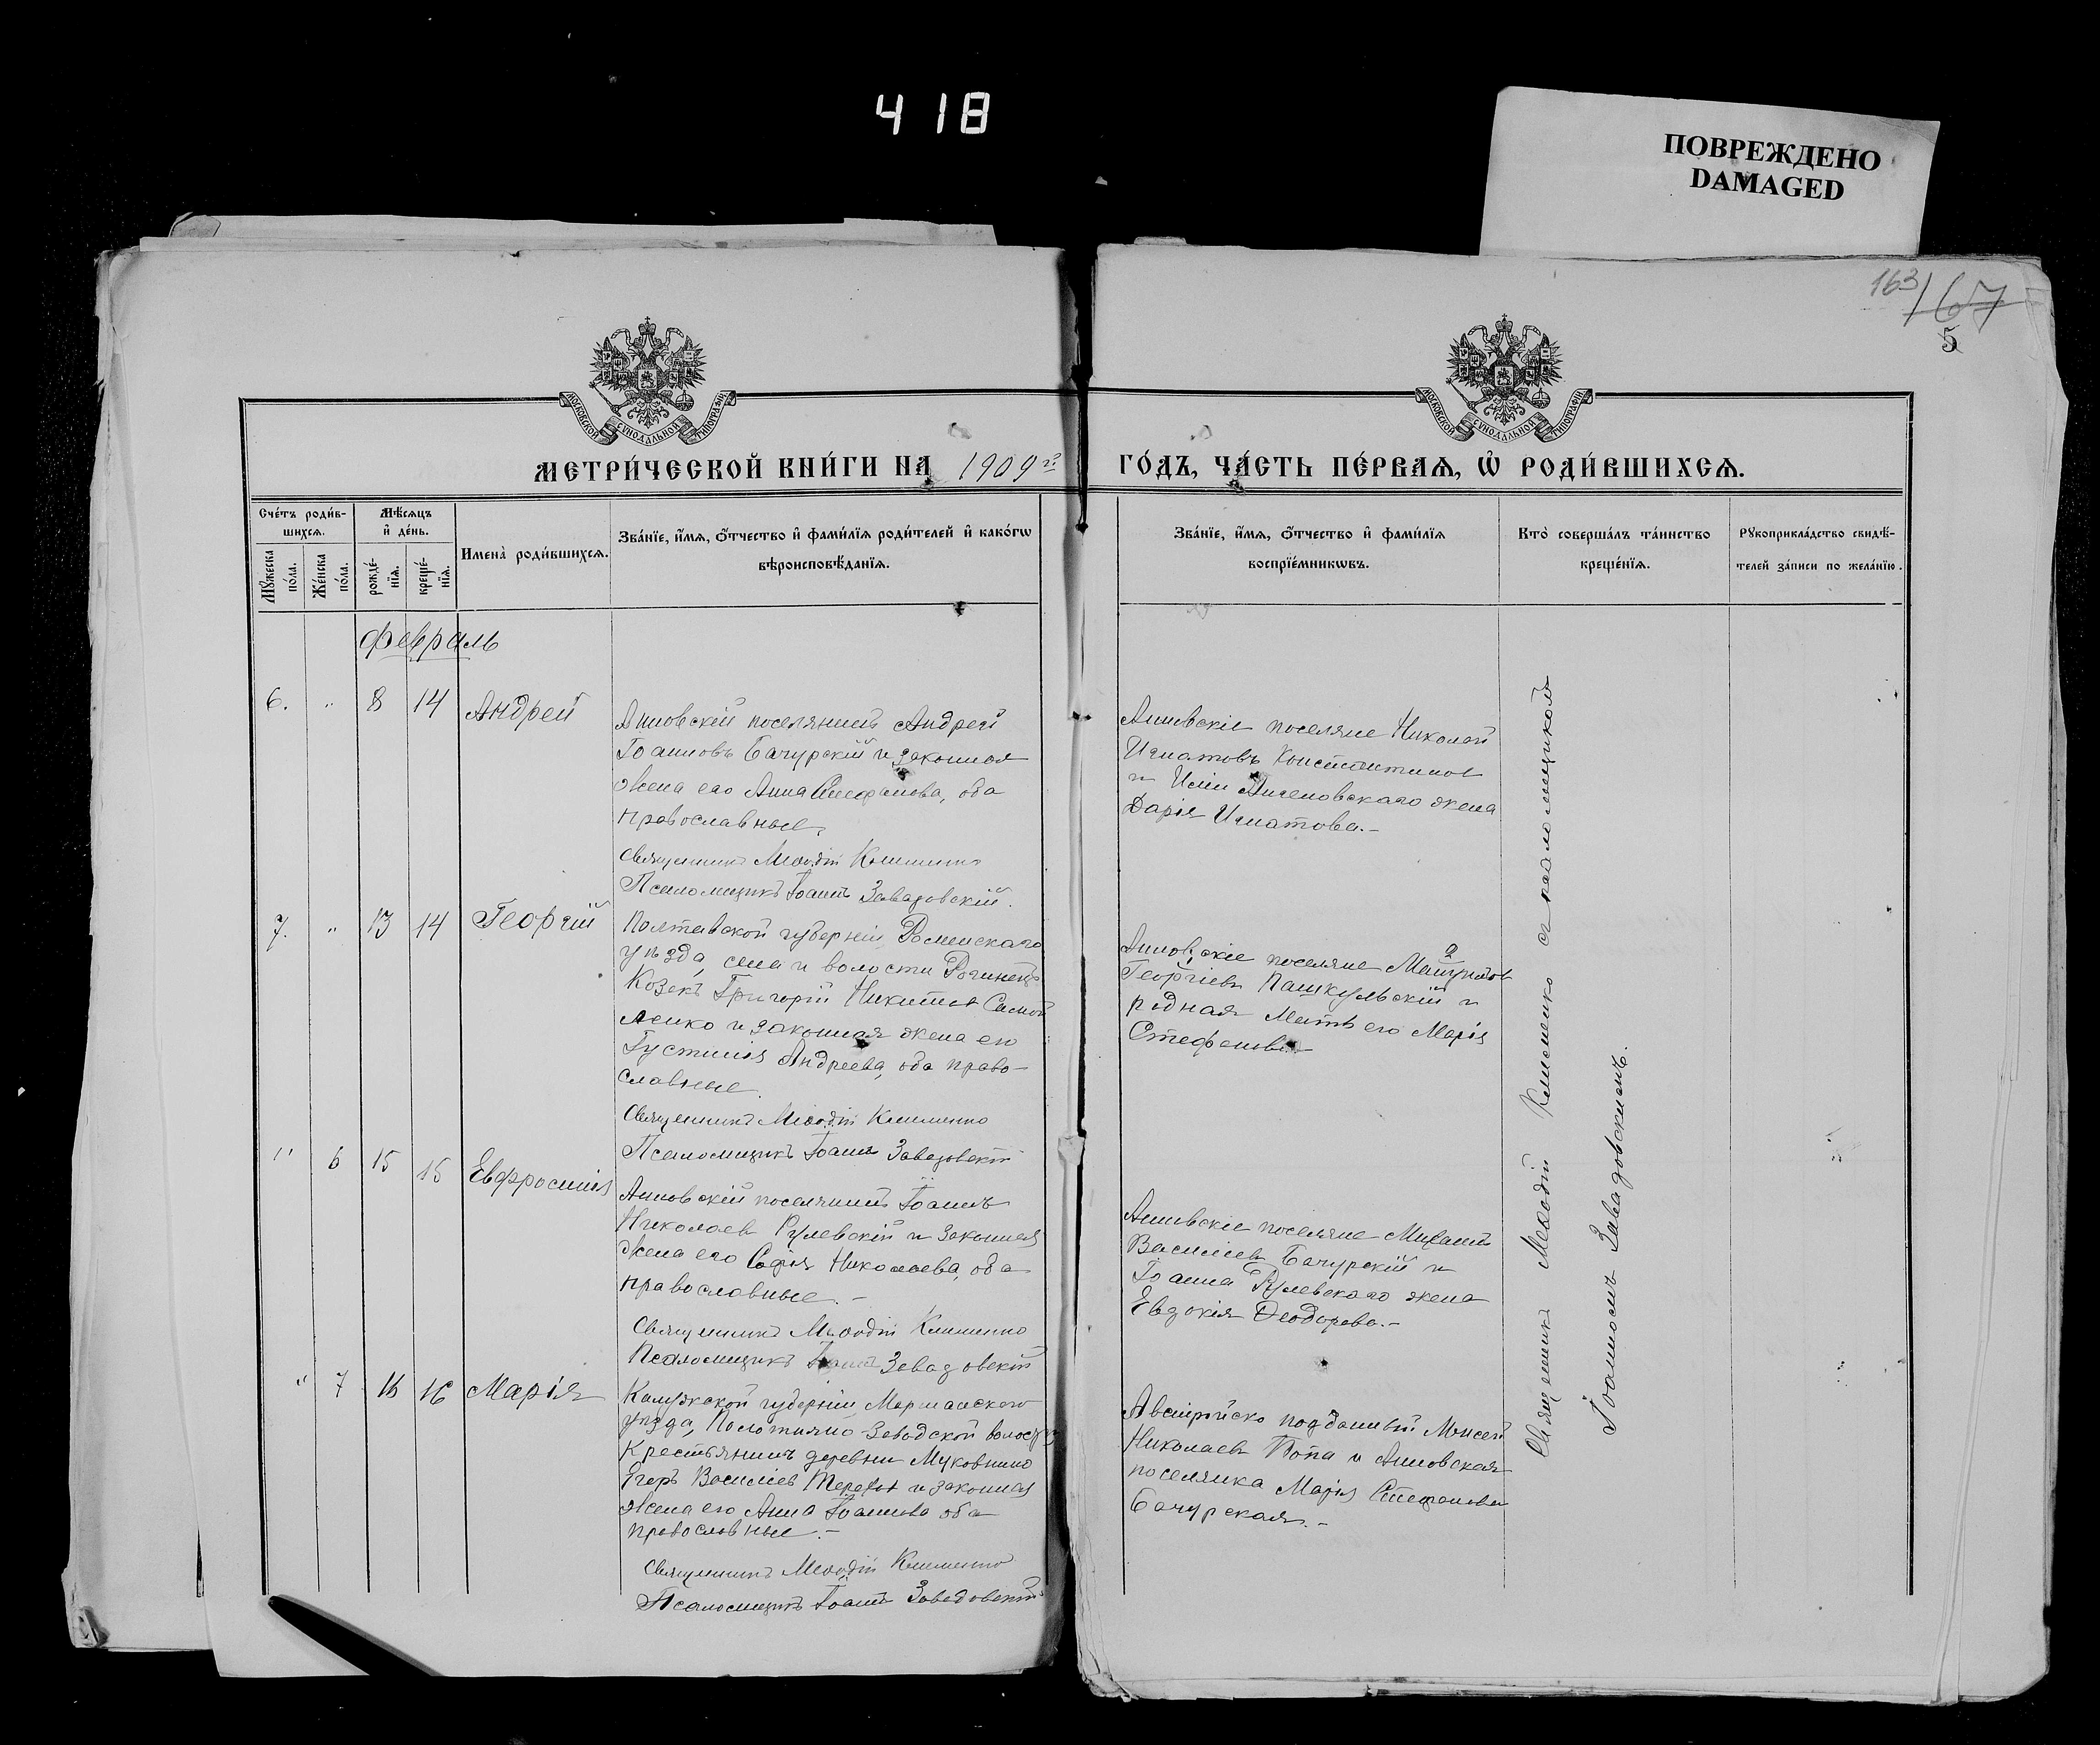 418
ПОВРЕЖДЕНО
DAMAGED
163
167
5
МОСКОВСКОЙ СѴНОДАЛЬНОЙ ТИПОГРАФІИ
МОСКОВСКОЙ СѴНОДАЛЬНОЙ ТИПОГРАФІИ
МЕТРИ́ЧЕСКОЙ КНИ́ГИ НА 1909 г.
ГО́ДЪ, ЧА́СТЬ ПЕ́РВАѦ, Ѽ РОДИ́ВШИХСѦ.
Сче́тъ роди́в-
шихсѧ.
Мꙋ́жеска по́ла.
Же́нска по́ла.
Мѣ́сѧцъ
и҆ де́нь.
рожде́-
нїѧ.
креще́-
нїѧ.
Имена̀ роди́вшихсѧ.
Зва́нїе, и҆́мѧ, ѻ҆́тчество и҆ фами́лїѧ роди́телей и҆ како́гѡ
вѣроисповѣ́данїѧ.
Зва́нїе, и҆́мѧ, ѻ҆́тчество и҆ фами́лїѧ
воспрїе́мникѡвъ.
Кто̀ соверша́лъ та́инство
креще́нїѧ.
Рꙋкоприкла́дство свидѣ́-
телей за́писи по жела́нїю.
Февраль
6. " 8 14 Андрей
Анновскій поселянинъ Андрей
Іоанновъ Бачурскій и законная
жена его Анна Стефанова, оба
православные.
Священникъ Меѳодій Клименко
Псаломщикъ Іоаннъ Завадовскій.
Анновскіе поселяне Николай
Игнатовъ Константинов
и жена
Дарія Игнатова.-
7. " 13 14 Георгій
Полтавской губерніи Роменскаго
уѣзда, села и волости
Козакъ Григорій Никитов Самой
ленко и законная жена его
Іустинія Андреева, оба право-
славные.
Священникъ Меѳодій Клименко
Псаломщикъ Іоаннъ Завадовскій
Анновскіе поселяне
Георгіевъ Пашкульскій и
родная мать его Марія
Стефанова
" 6 15 15 Евфросинія
Анновскій поселянинъ Іоаннъ
Николаев Рулевскій и законная
жена его Софія Николаева, оба
православные.-
Священникъ Меѳодій Клименко
Псаломщикъ Іоаннъ Завадовскій
Анновскіе поселяне Михаилъ
Василіевъ Бачурскій и
Іоанна Рулевскаго жена
Евдокія Ѳеодорова.-
" 7 16 16 Марія
Калужской губерніи
уѣзда, Полотняно-Заводской волости
Крестьянинъ деревни Муковнино
Егоръ Василіев Терехов и законная
жена его Анна Іоаннова оба
православные.-
Священникъ Меѳодій Клименко
Псаломщикъ Іоаннъ Завадовскій
Австрійско подданный Моисей
Николаевъ Попа и Анновская
поселянка Марія Стефанова
Бачурская.-
Священникъ Меѳодій Клименко съ псаломщикомъ
Іоанномъ Завадовскимъ.